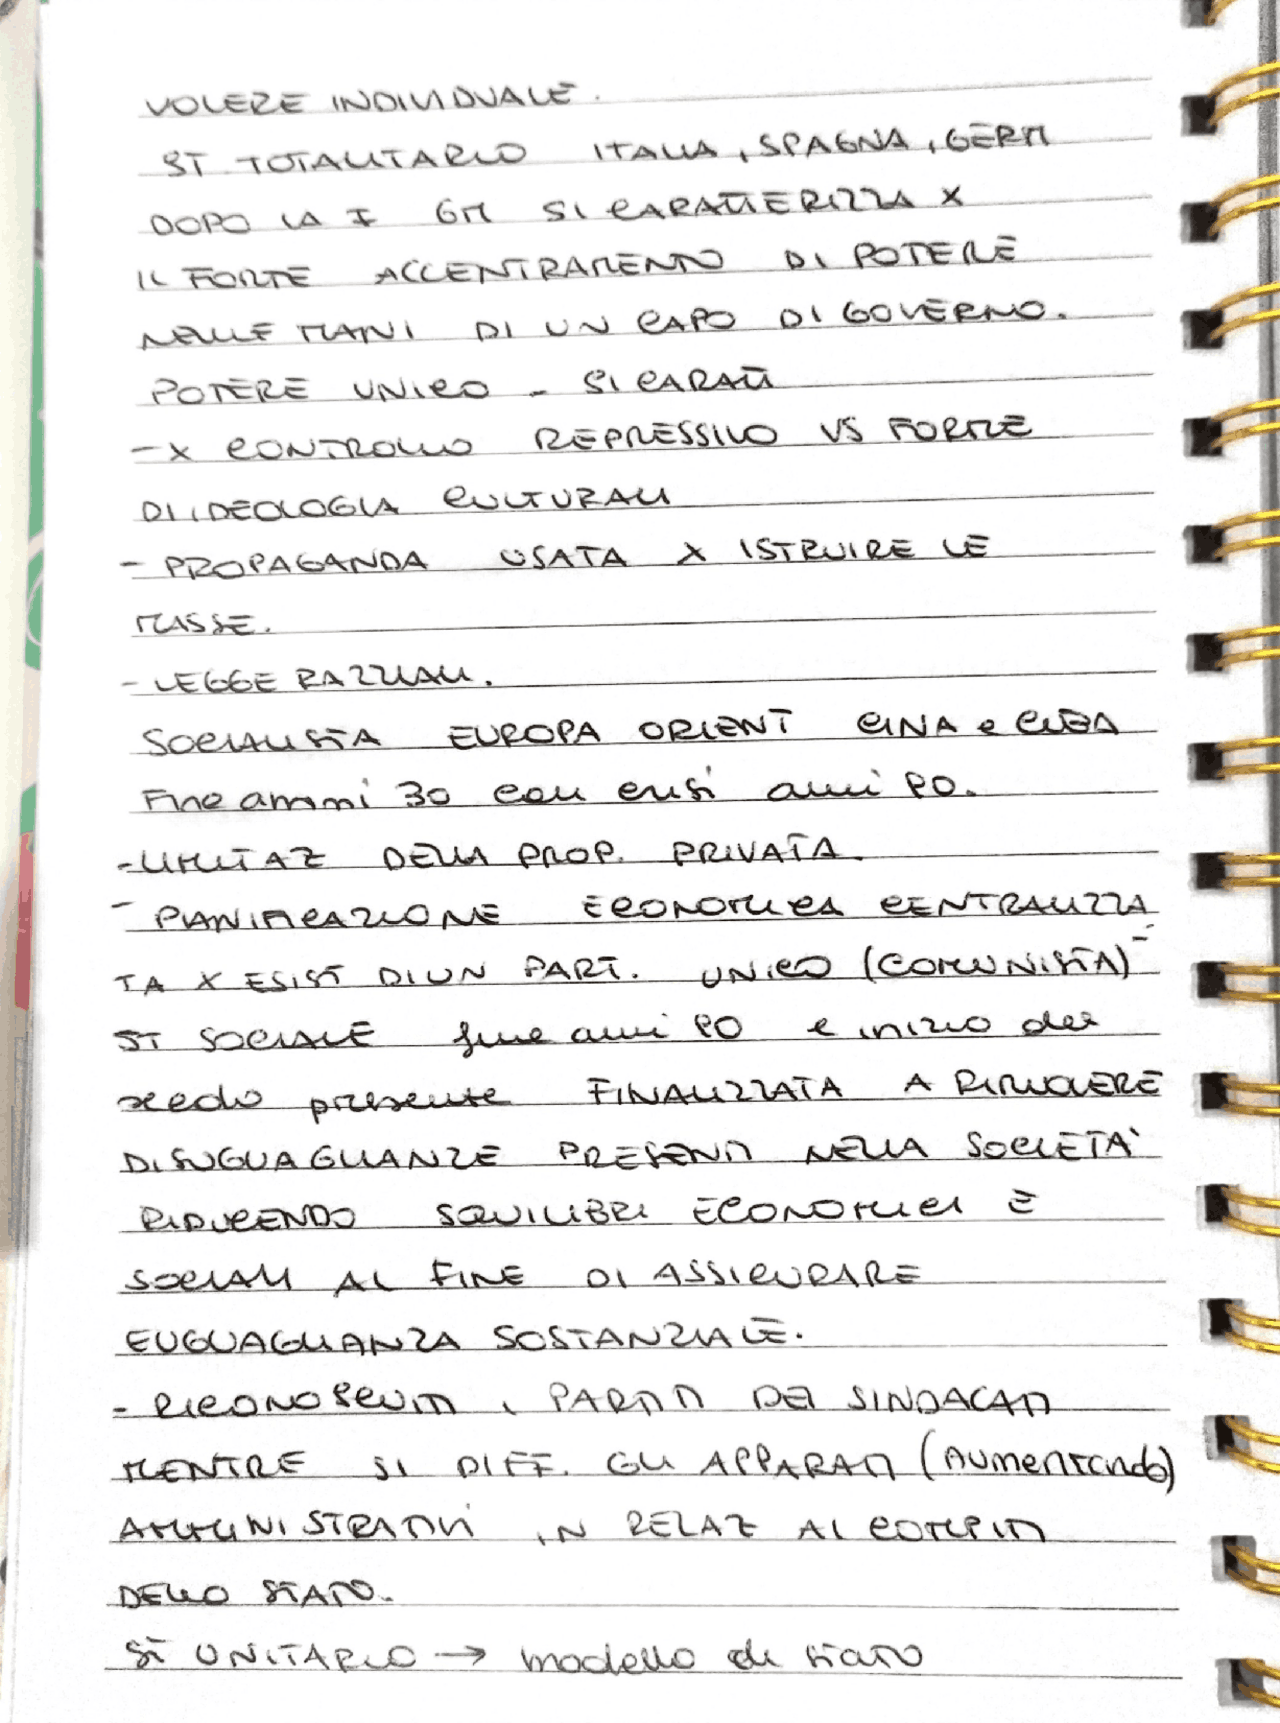 VOLERE INDIVIDUALE.
ST TOTALITARIO ITALIA, SPAGNA, GERM
DOPO LA I GM SI CARATTERIZZA X
IL FORTE ACCENTRAMENTO DI POTERE
NELLE MANI DI UN CAPO DI GOVERNO.
POTERE UNICO - SI CARATT
- X CONTROLLO REPRESSIVO VS FORME
DI IDEOLOGIA CULTURALI
- PROPAGANDA USATA X ISTRUIRE LE
MASSE.
- LEGGE RAZZIALI.
SOCIALISTA EUROPA ORIENT CINA e CUBA
Fine anni 30 con crisi anni 80.
- LIMITAZ DELLA PROP. PRIVATA.
- PIANIFICAZIONE ECONOMICA CENTRALIZZA
TA X ESIST DI UN PART. UNICO (COMUNISTA)
ST SOCIALE fine anni 80 e inizio del
secolo presente FINALIZZATA A RIMUOVERE
DISUGUAGLIANZE PRESENTI NELLA SOCIETA'
RIDUCENDO SQUILIBRI ECONOMICI E
SOCIALI AL FINE DI ASSICURARE
EUGUAGLIANZA SOSTANZIALE.
- RICONOSCIUTI I PARTITI DEI SINDACATI
MENTRE SI DIFF. GLI APPARATI (Aumentando)
AMMINISTRATIVI IN RELAZ AI COMPITI
DELLO STATO.
ST UNITARIO → modello di stato